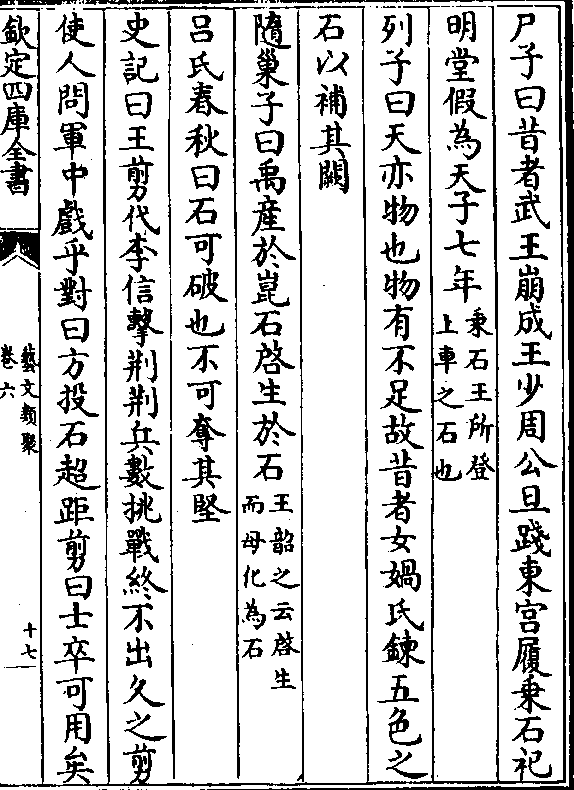 尸子曰昔者武王崩成王少周公旦踐東宮履乗石祀
明堂假為天子七年乗石王所登
上車之石也
列子曰天亦物也物有不足故昔者女媧氏鍊五色之
石以補其闕
隨巢子曰禹産於崑石啓生於石王韶之云啓生
而母化為石
吕氏春秋曰石可破也不可奪其堅
史記曰王剪代李信擊荆荆兵數挑戰終不出久之剪
使人問軍中戲乎對曰方投石超距剪曰士卒可用矣
欽定四庫全書
藝文類聚
卷六
十七